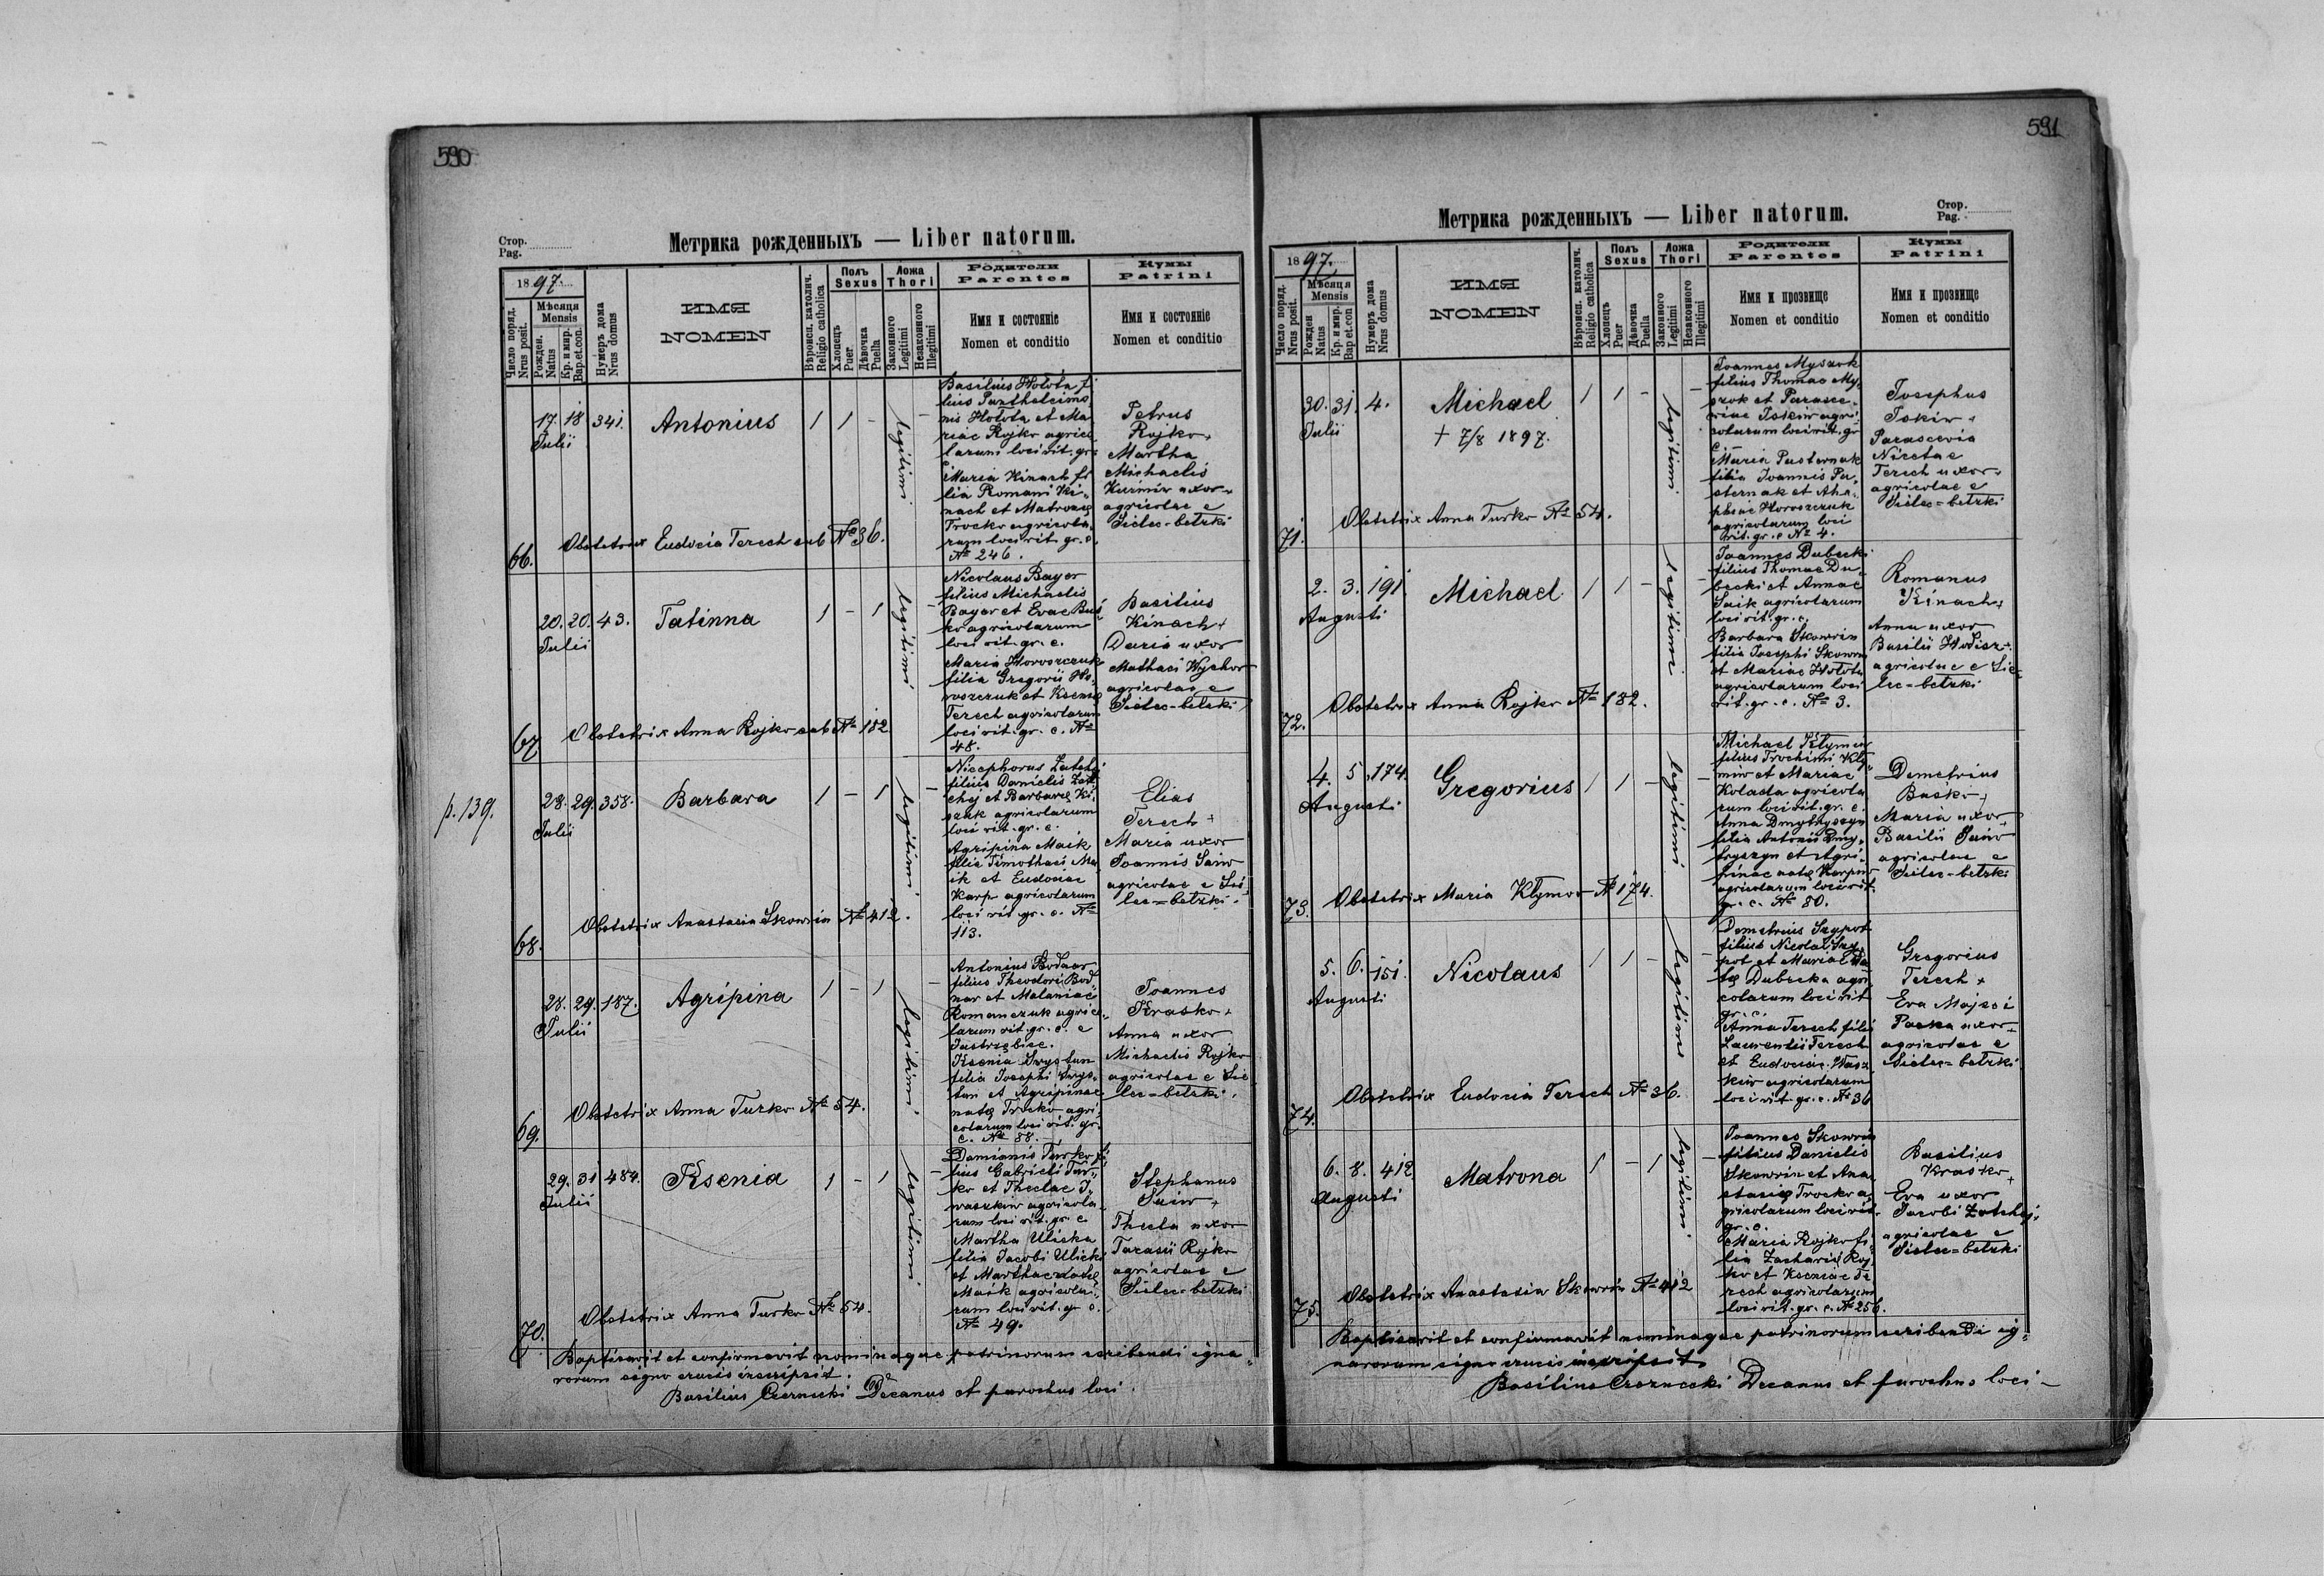 590
Стор.
Pag.
Метрика рожденныхъ — Liber natorum.
1897.
Число поряд.
Nrus posit.
Мѣсяця
Mensis
Рожден.
Natus
Кр. и мир.
Bap.et.con.
Нумеръ дома
Nrus domus
ИМЯ
NOMEN
Вѣроисп. католич.
Religio catholica
Полъ
Sexus
Хлопецъ
Puer
Дѣвочка
Puella
Ложа
Thori
Законного
Legitimi
Незаконного
Illegitimi
Родители
Parentes
Имя и состояніе
Nomen et conditio
Кумы
Patrini
Имя и состояніе
Nomen et conditio
66.
17. 18 341.
Julii
Antonius
1 1 -
legitimi
-
Basilius Hołota fi
lius Pantheleimo
nis Hołota et Ma
riae Rojko agrico
larum loci rit. gr.
c.
Maria Kinach fi
lia Romani Ki„
nach et Matronę
Trocko agricola„
rum loci rit. gr. c.
№ 246.
Petrus
Rojko+
Martha
Michaelis
Kuzmiw uxor+
agricolae e
Sielec=bełzki
Obstetrix Eudocia Terech sub № 36.
67
20. 20. 43.
Julii
Tatinna
1 - 1
legitimi
-
Nicolaus Bayer
filius Michaelis
Bayer et Evae Bus
ko agricolarum
loci rit. gr. c.
Maria Horoszczuk
filia Gregorii Ho„
roszczuk et Ksenię
Terech agricolarum
loci rit. gr. c. №
48.
Basilius
Kinach+
Daria uxor
Mathaei Wychor
agricolae e
Sielec-bełzki
Obstetrix Anna Rojko sub № 182
p. 139.
68.
28. 29. 358.
Julii
Barbara
1 - 1
legitimi
-
Nicephorus Zatchej
filius Danielis Zat„
chej et Barbarę Ki„
szuk agricolarum
loci rit. gr. c.
Agripina Maik
filia Timothaei Ma
ik et Eudociae
Karp agricolarum
loci rit. gr. c. №
113.
Elias
Terech +
Maria uxor
Joannis Saiw
agricolae e Sie
lec=bełzki.
Obstetrix Anastasia Skowrin № 412.
69.
28. 29. 187.
Julii
Agripina
1 - 1
legitimi
-
Antonius Bodnar
filius Theodori Bod„
nar et Malaniae
Romanczuk agrico„
larum rit. gr. c. e
Jastrzębiec.
Ksenia Swystun
filia Josephi Swys„
tun et Agripinae
natę Trocko agri„
colarum loci rit. gr.
c. № 88.
Joannes
Krasko+
Anna uxor
Michaelis Rojko
agricolae e Sie
lec=bełzki.
Obstetrix Anna Turko № 54.
70.
29. 31 484.
Julii
Ksenia
1 - 1
legitimi
-
Damianis Turko fi
lius Gabrieli Tur„
ko et Theclae I„
waszkiw agricola„
rum loci rit. gr. c
Martha Ulicka
filia Jacobi Ulicki
et Marthae natę
Maik agricola„
rum loci rit. gr. c.
№ 49.
Stephanus
Saiw +
Thecla uxor
Tarasii Rojko
agricolae e
Sielec=bełzki
Obstetrix Anna Turko № 54.
Baptisavit et confirmavit nominaque patrinorum scribendi igna„
rorum signo crucis inscripsit.
Basilius Czernecki Decanus et parochus loci.
591
Стор.
Pag.
Метрика рожденныхъ — Liber natorum.
1897.
Число поряд.
Nrus posit.
Мѣсяця
Mensis
Рожден
Natus
Кр. и мир.
Bap.et.con
Нумеръ дома
Nrus domus
ИМЯ
NOMEN
Вѣроисп. католич.
Religio catholica
Полъ
Sexus
Хлопецъ
Puer
Дѣвочка
Puella
Ложа
Thori
Законного
Legitimi
Незаконного
Illegitimi
Родители
Parentes
Имя и прозвище
Nomen et conditio
Кумы
Patrini
Имя и прозвище
Nomen et conditio
71.
30. 31. 4.
Julii
Michael
† 7/8 1897.
1 1 -
legitimi
-
Joannes Myszok
filius Thomae My„
szok et Parasce„
viae Iskiw agri„
colarum loci rit. gr
c.
Maria Pasternak
filia Joannis Pa„
sternak et Aha„
phiae Horoszczuk
agricolarum loci
rit. gr. c № 4.
Josephus
Iskiw+
Parascevia
Nicetae
Terech uxor+
agricolae e
Sielec=bełzki
Obstetrix Anna Turko № 54.
72.
2. 3. 191.
Augusti
Michael
1 1 -
legitimi
-
Joannes Dubecki
filius Thomae Du„
becki et Annae
Saik agricolarum
loci rit. gr. c.
Barbara Skowrin
filia Josephi Skowrin
et Mariae Hołota
agricolarum loci
rit. gr. c. № 3.
Romanus
Kinach+
Anna uxor
Basilii Hodisz+
agricolae e Sie„
lec=bełzki
Obstetrix Anna Rojko № 182.
73.
4. 5. 174.
Augusti
Gregorius
1 1 -
legitimi
-
Michael Kłymiw
filius Trochimi Kły„
miw et Mariae
Kolada agricola
rum loci rit. gr. c.
Anna Dmytryszyn
filia Antonii Dmy„
tryszyn et Agri„
pinae natę Karpiw
agricolarum loci rit.
gr. c. № 80.
Demetrius
Busko+
Maria uxor+
Basilii Saiw
agricolae e
Sielec-bełzki
Obstetrix Maria Kłymow № 174.
74.
5. 6. 151.
Augusti
Nicolaus
1 1 -
legitimi
-
Demetrius Szypot
filius Nicolai Szy„
pot et Mariae na
tę Dubecka agri
colarum loci rit
gr. c.
Anna Terech filia
Laurentii Terech
et Eudociae Wasz„
kiw agricolarum
loci rit. gr. c. № 36
Gregorius
Terech+
Eva Mojsei
Paska uxor+
agricolae e
Sielec=bełzki
Obstetrix Eudocia Terech № 36.
75.
6. 8. 412
Augusti
Matrona
1 - 1
legitimi
-
Joannes Skowrin
filius Danielis
Skowrin et Ana„
stasię Trocko a„
gricolarum loci rit.
gr. c.
Maria Rojko fi„
lia Zachariae Roj„
ko et Kseniae Te„
rech agricolarum
loci rit. gr. c. № 256.
Basilius
Krasko+
Eva uxor
Jacobi Zatchej.
agricolae e
Sielec=bełzki
Obstetrix Anastasia Skowrin № 412
Baptisavit et confirmavit nominaque patrinorum scribendi ig„
narorum signo crucis inscripsit
Basilius Czernecki Decanus et parochus loci –